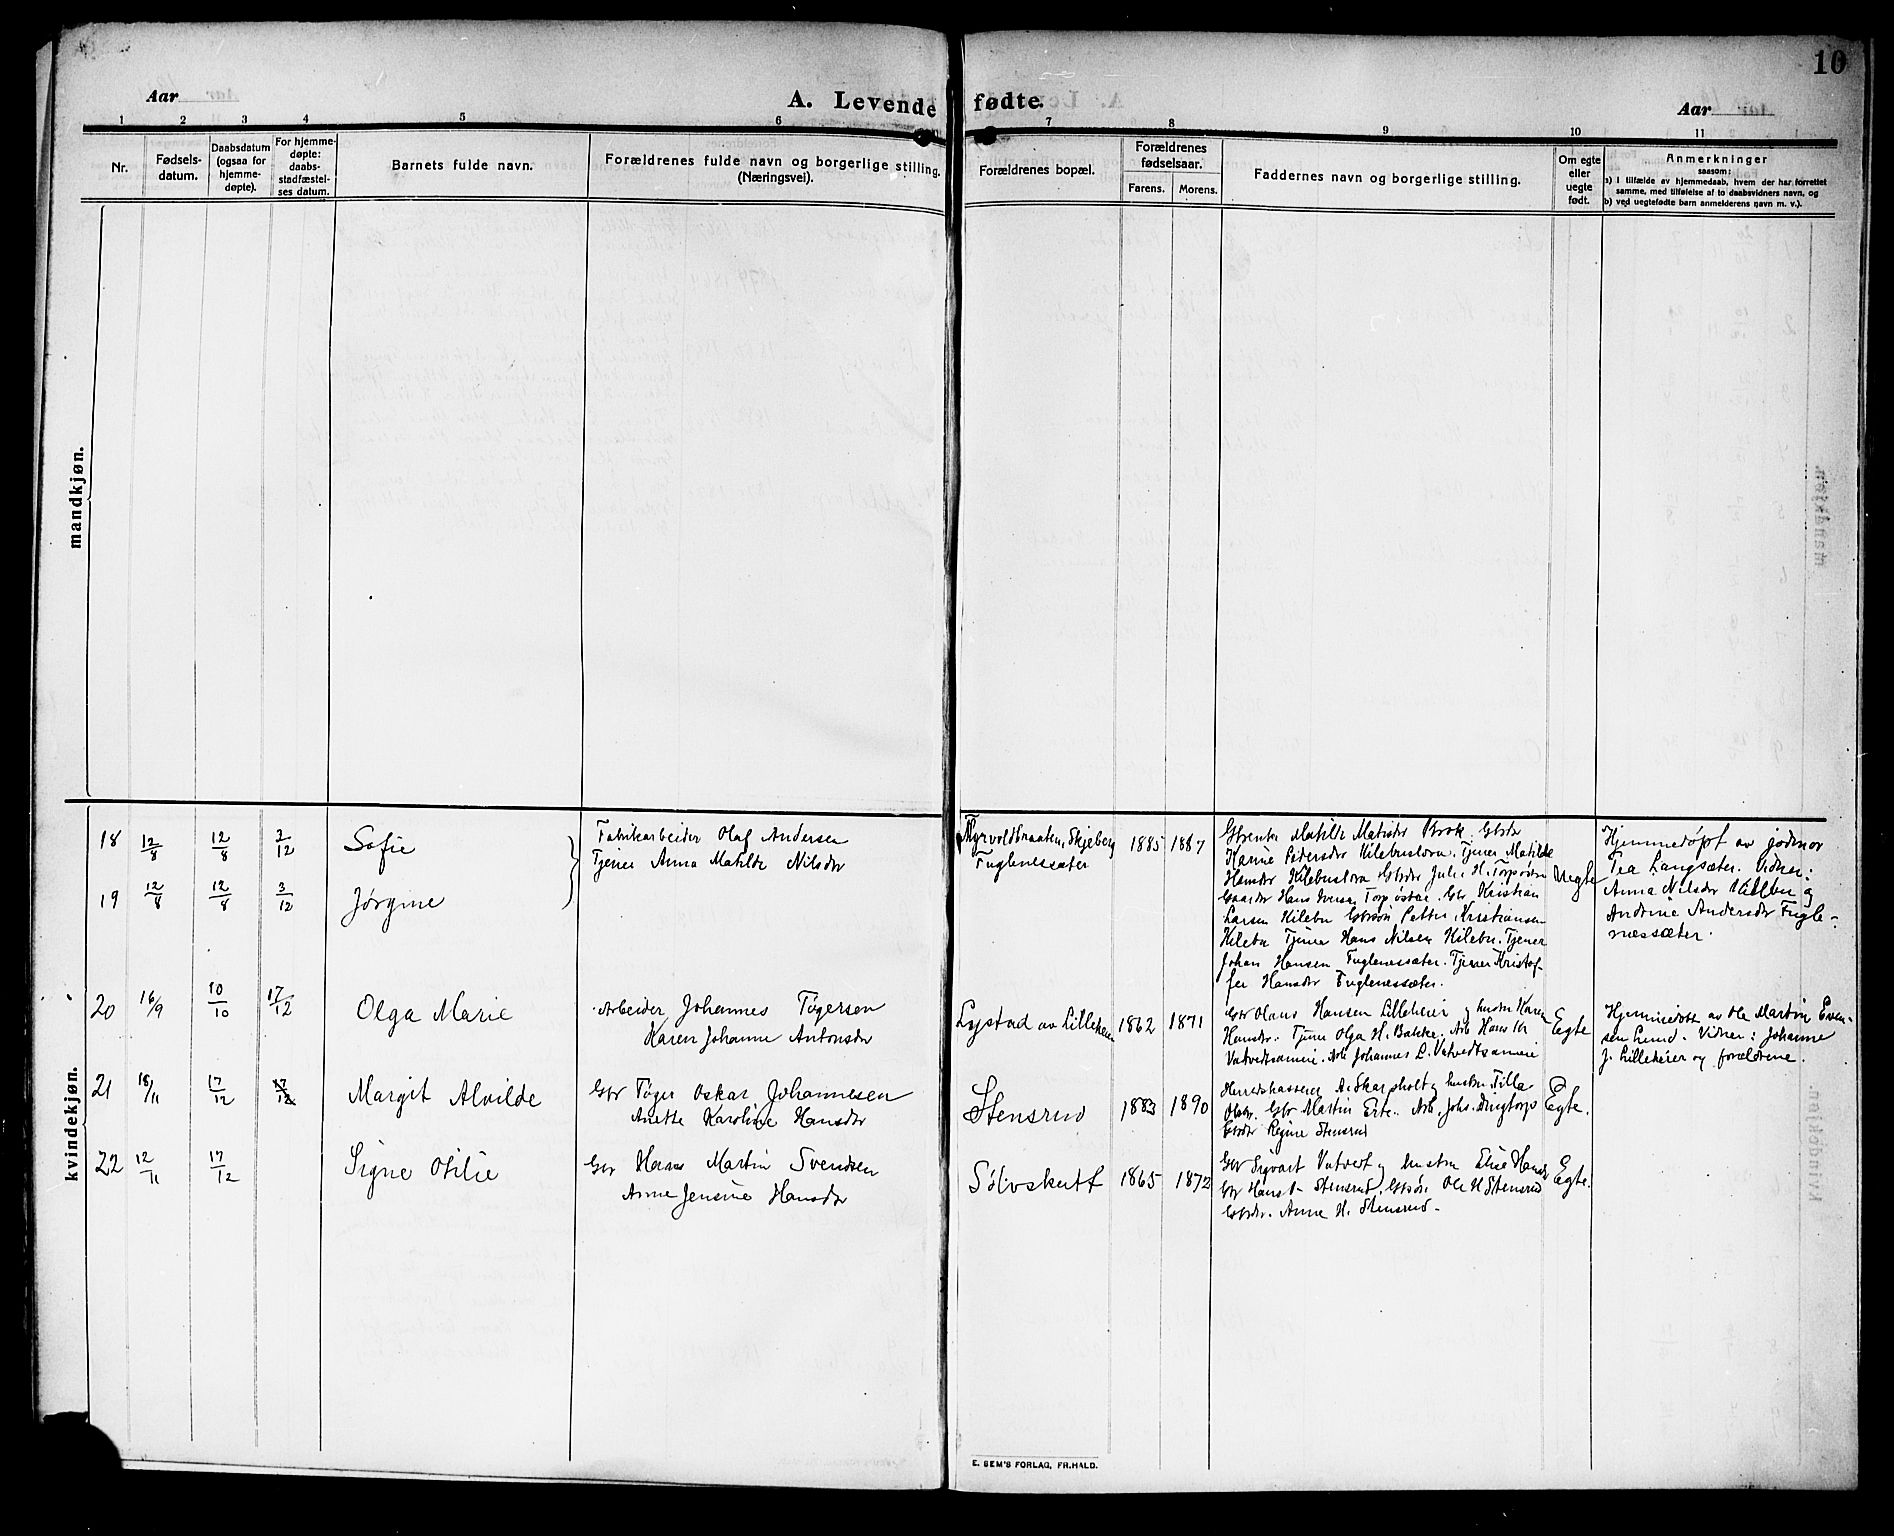 10
Aar
A. Levende fødte.
Aar
1 2 3 4 5 6 7 8 9 10 11
Nr.
Fødsels-
datum.
Daabsdatum
(ogsaa for
hjemme-
døpte).
For hjemme-
døpte:
daabs-
stadfæstel-
ses datum.
Barnets fulde navn.
Forældrenes fulde navn og borgerlige stilling.
(Næringsvei).
Forældrenes bopæl.
Forældrenes
fødselsaar.
Farens. Morens.
Faddernes navn og borgerlige stilling.
Om egte
eller
uegte
født.
Anmerkninger
saasom:
a) i tilfælde av hjemmedaab, hvem der har forrettet
samme, med tilføielse af to daabsvidners navn, og
b) ved uegtefødte barn anmelderens navn m. v.).
mandkjøn.
kvindekjøn.
18 12/8 12/8 3/12 Sofie
19 12/8 12/8 3/12 Jørgine
Fabrikarbeider Olaf Andersen
Tjener Anna Matilde Nilsdr
Skjeberg
Fuglenessæter
1885 1887
Matilde Matisdr Krok. Gbrdr
Karine Pedersdr Kilebuslova. Tjener Matilde
Hansdr Kilebuslova Gbrdr Julie H. Torpøstre
Gaardbr Hans Iversen Torp østre. Gbr Kristian
Larsen Kilebu Gbrsøn Petter Kristiansen
Kilebu Tjener Hans Nilsen Kilebu. Tjener
Johan Hansen Fuglenessæter. Tjener Kristof-
fer Hansdr Fuglenessæter.
Uegte
Hjemmedøpt av jodmor
Tea Langsæter. Vidner:
Anna Nilsdr Kilebu og
Andrine Andersdr Fugle-
nessæter.
20 16/9 10/10 17/12 Olga Marie
Arbeider Johannes Tøgersen
Karen Johanne Antonsdr
Lystad av Lilleheier
1862 1871
Gbr Olaus Hansen Lilleheier og hustru Karen
Hansdr. Tjener Olga H. Bakke. Arb Hans Kr
Vatvedtsameie. Arb Johannes L. Vatvedtsameie
Egte
Hjemmedøbt av Ole Martin Even-
sen Lund. Vidner: Johanne
J. Lilleheier og forældrene.
21 18/11 17/12 17/12 Margit Alvilde
Gbr Tøger Oskar Johannesen
Anette Karoline Hansdr
Stensrud
1883 1890
Herredskasserer A. Skarpholt og hustru Tilla
Olsdr. Gbr Martin Erte. Arb. Johs. Dingtorp
Gbrdr Regine Stensrud
Egte.
22 12/11 17/12 Signe Otilie
Gbr Hans Martin Svendsen
Anne Jensine Hansdr
Sölvskutt
1865 1872
Gbr Sigvart Vatvedt og hustru Elise Hansdr
Gbr Hans Stensrud. Gbrsøn Ole H Stensrud
Gbrdr. Anne H. Stensrud.
Egte.
E. SEM'S FORLAG, FR.HALD.